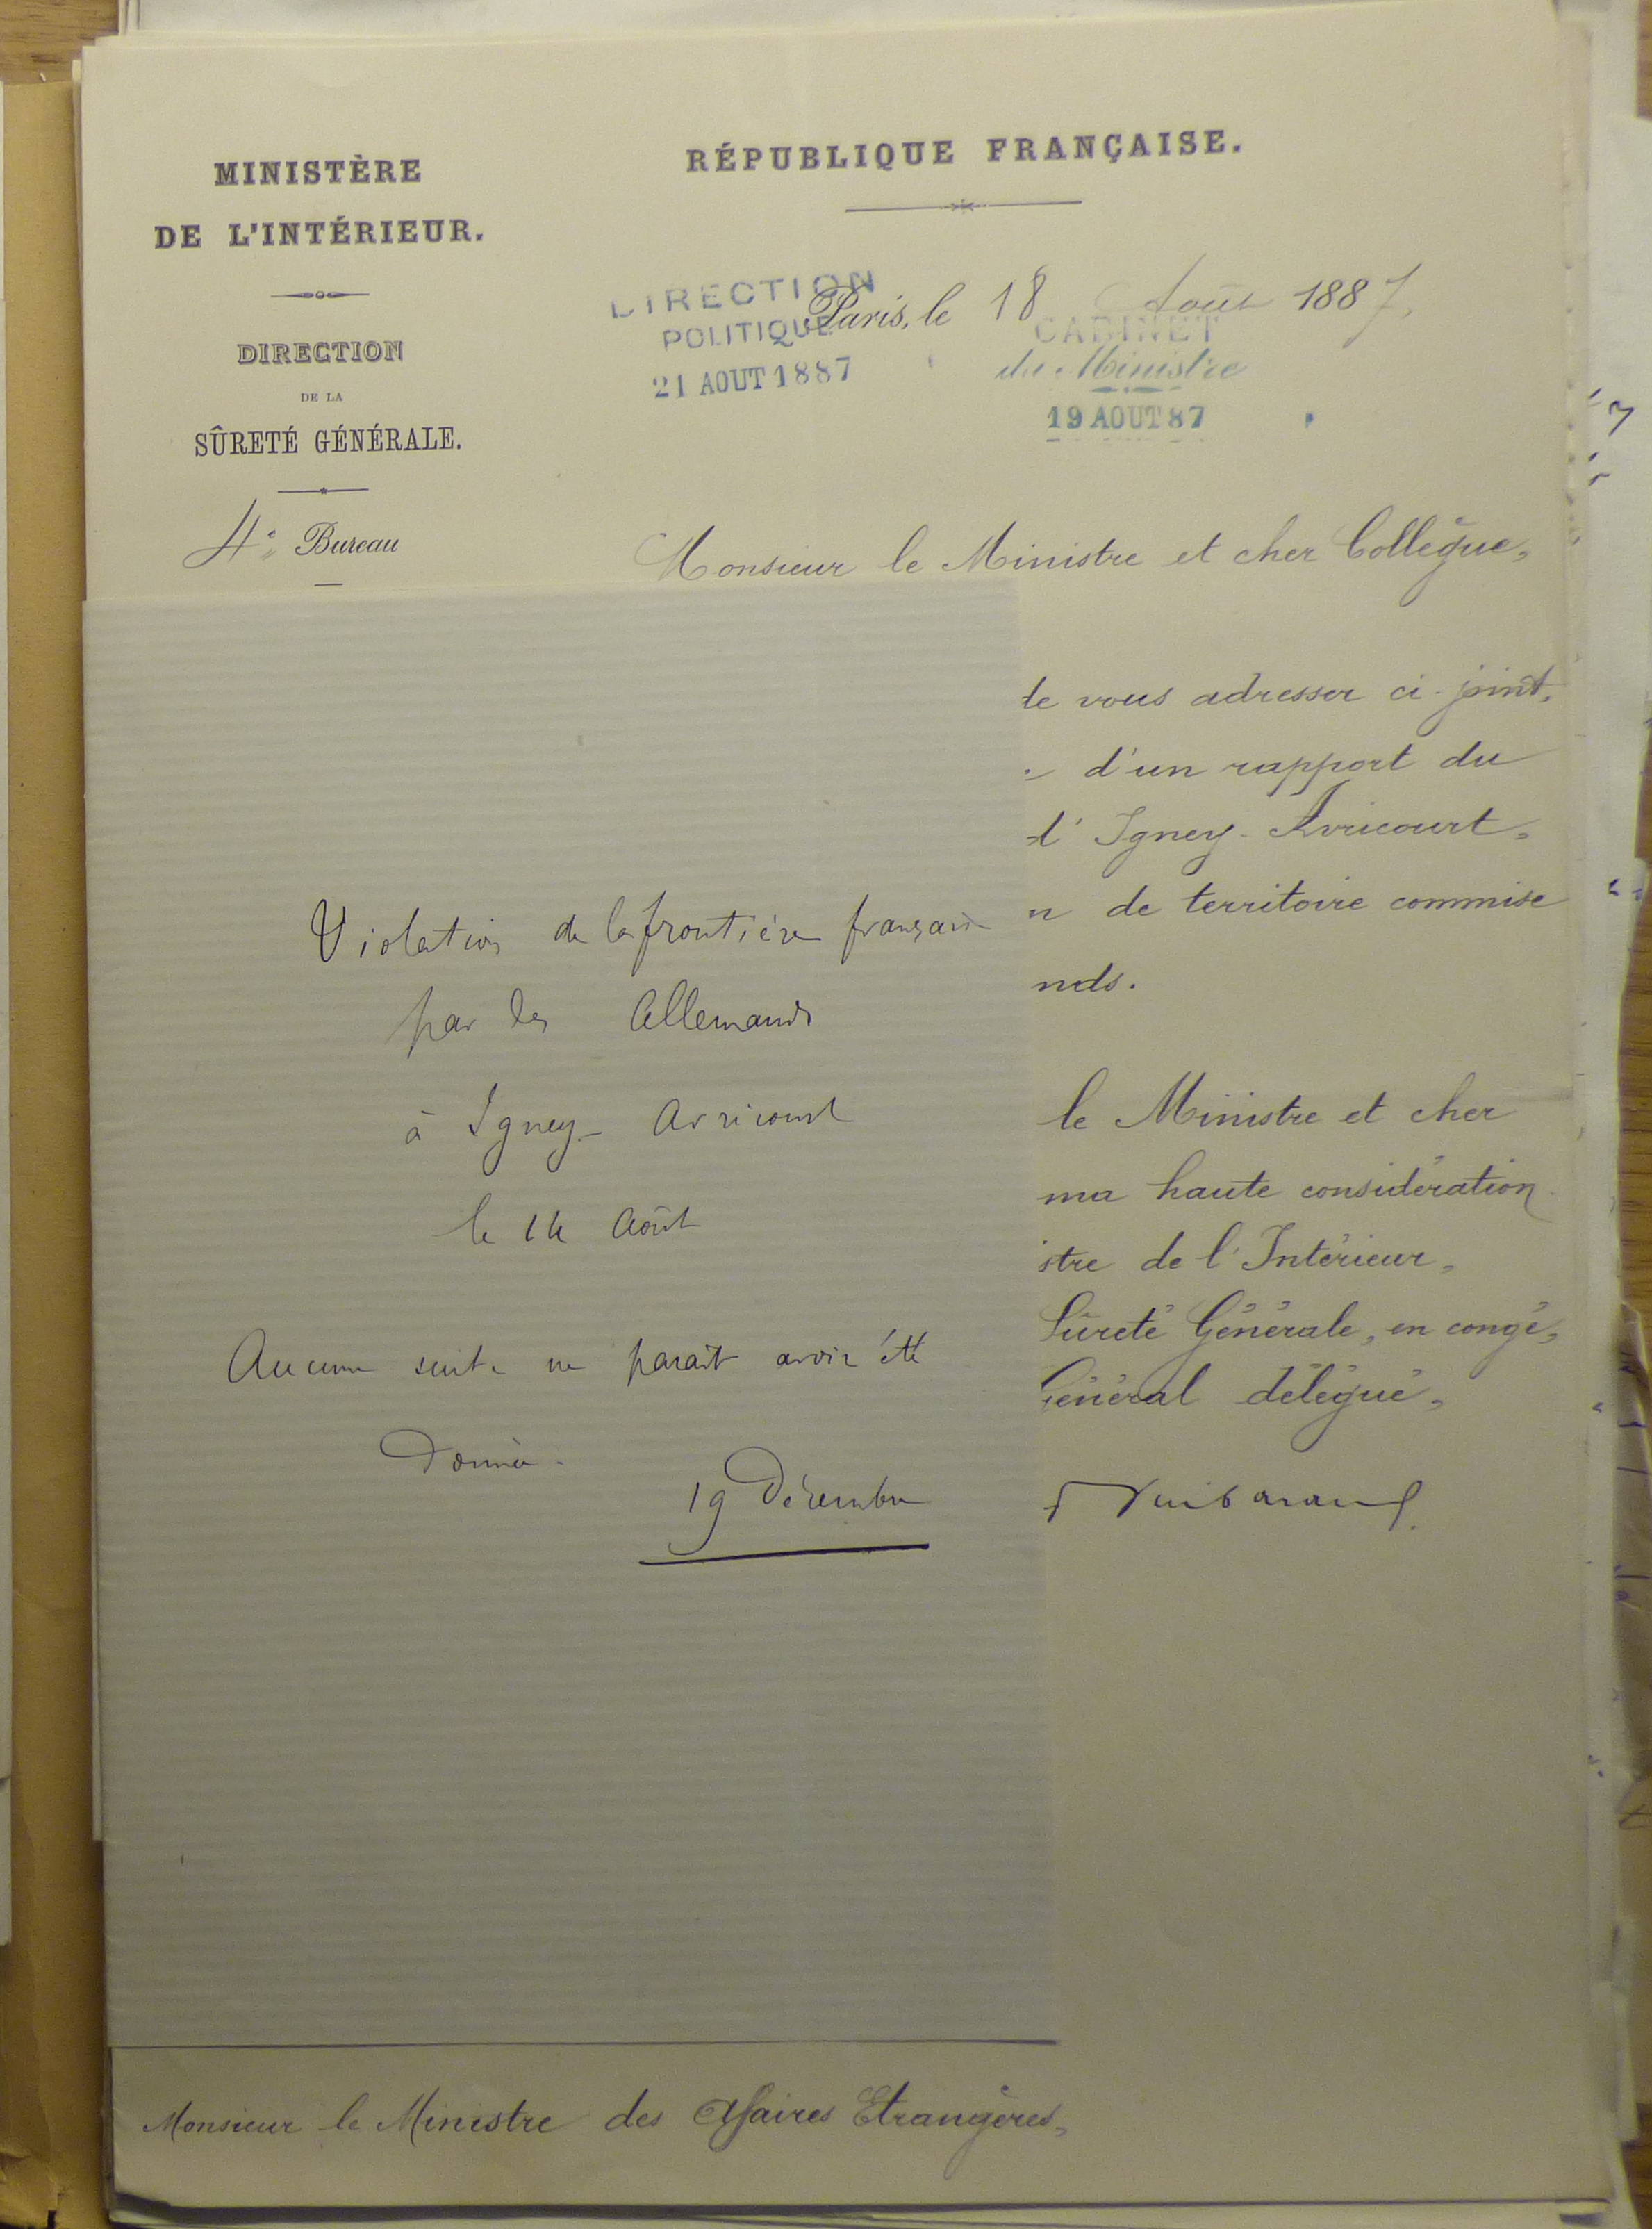 MINISTÈRE
DE L'INTÉRIEUR.
DIRECTION
DE LA
SÛRETÉ GÉNÉRALE.
4e Bureau
RÉPUBLIQUE FRANÇAISE.
Paris, le 18 Août 1887.
DIRECTION
POLITIQUE
21 AOUT 1887
CABINET
du Ministre
19 AOUT 87
Monsieur le Ministre et cher Collègue,
de vous adresser ci-joint,
d'un rapport du
d'Igney-Avricourt,
n de territoire commise
nds.
le Ministre et cher
ma haute considération
istre de l'Intérieur,
Sûreté Générale, en congé,
Général délégué,
Violation de la frontière française
par les Allemands
à Igney-Avricourt
le 14 Août
Aucune suite ne parait avoir été
donnée.
19 Décembre
Monsieur le Ministre des Affaires Etrangères,